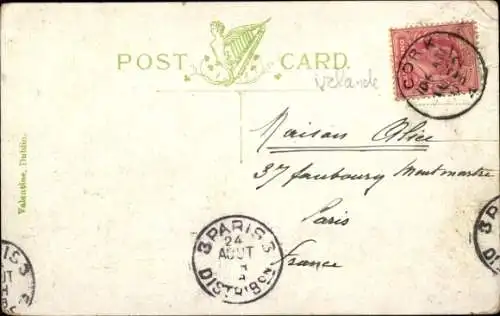 POST CARD.
irlande
CORK
Maison Alice
37 faubourg Montmartre
Paris
France
Valentine, Dublin.
3 PARIS 3
24
AOUT
DISTRIBON